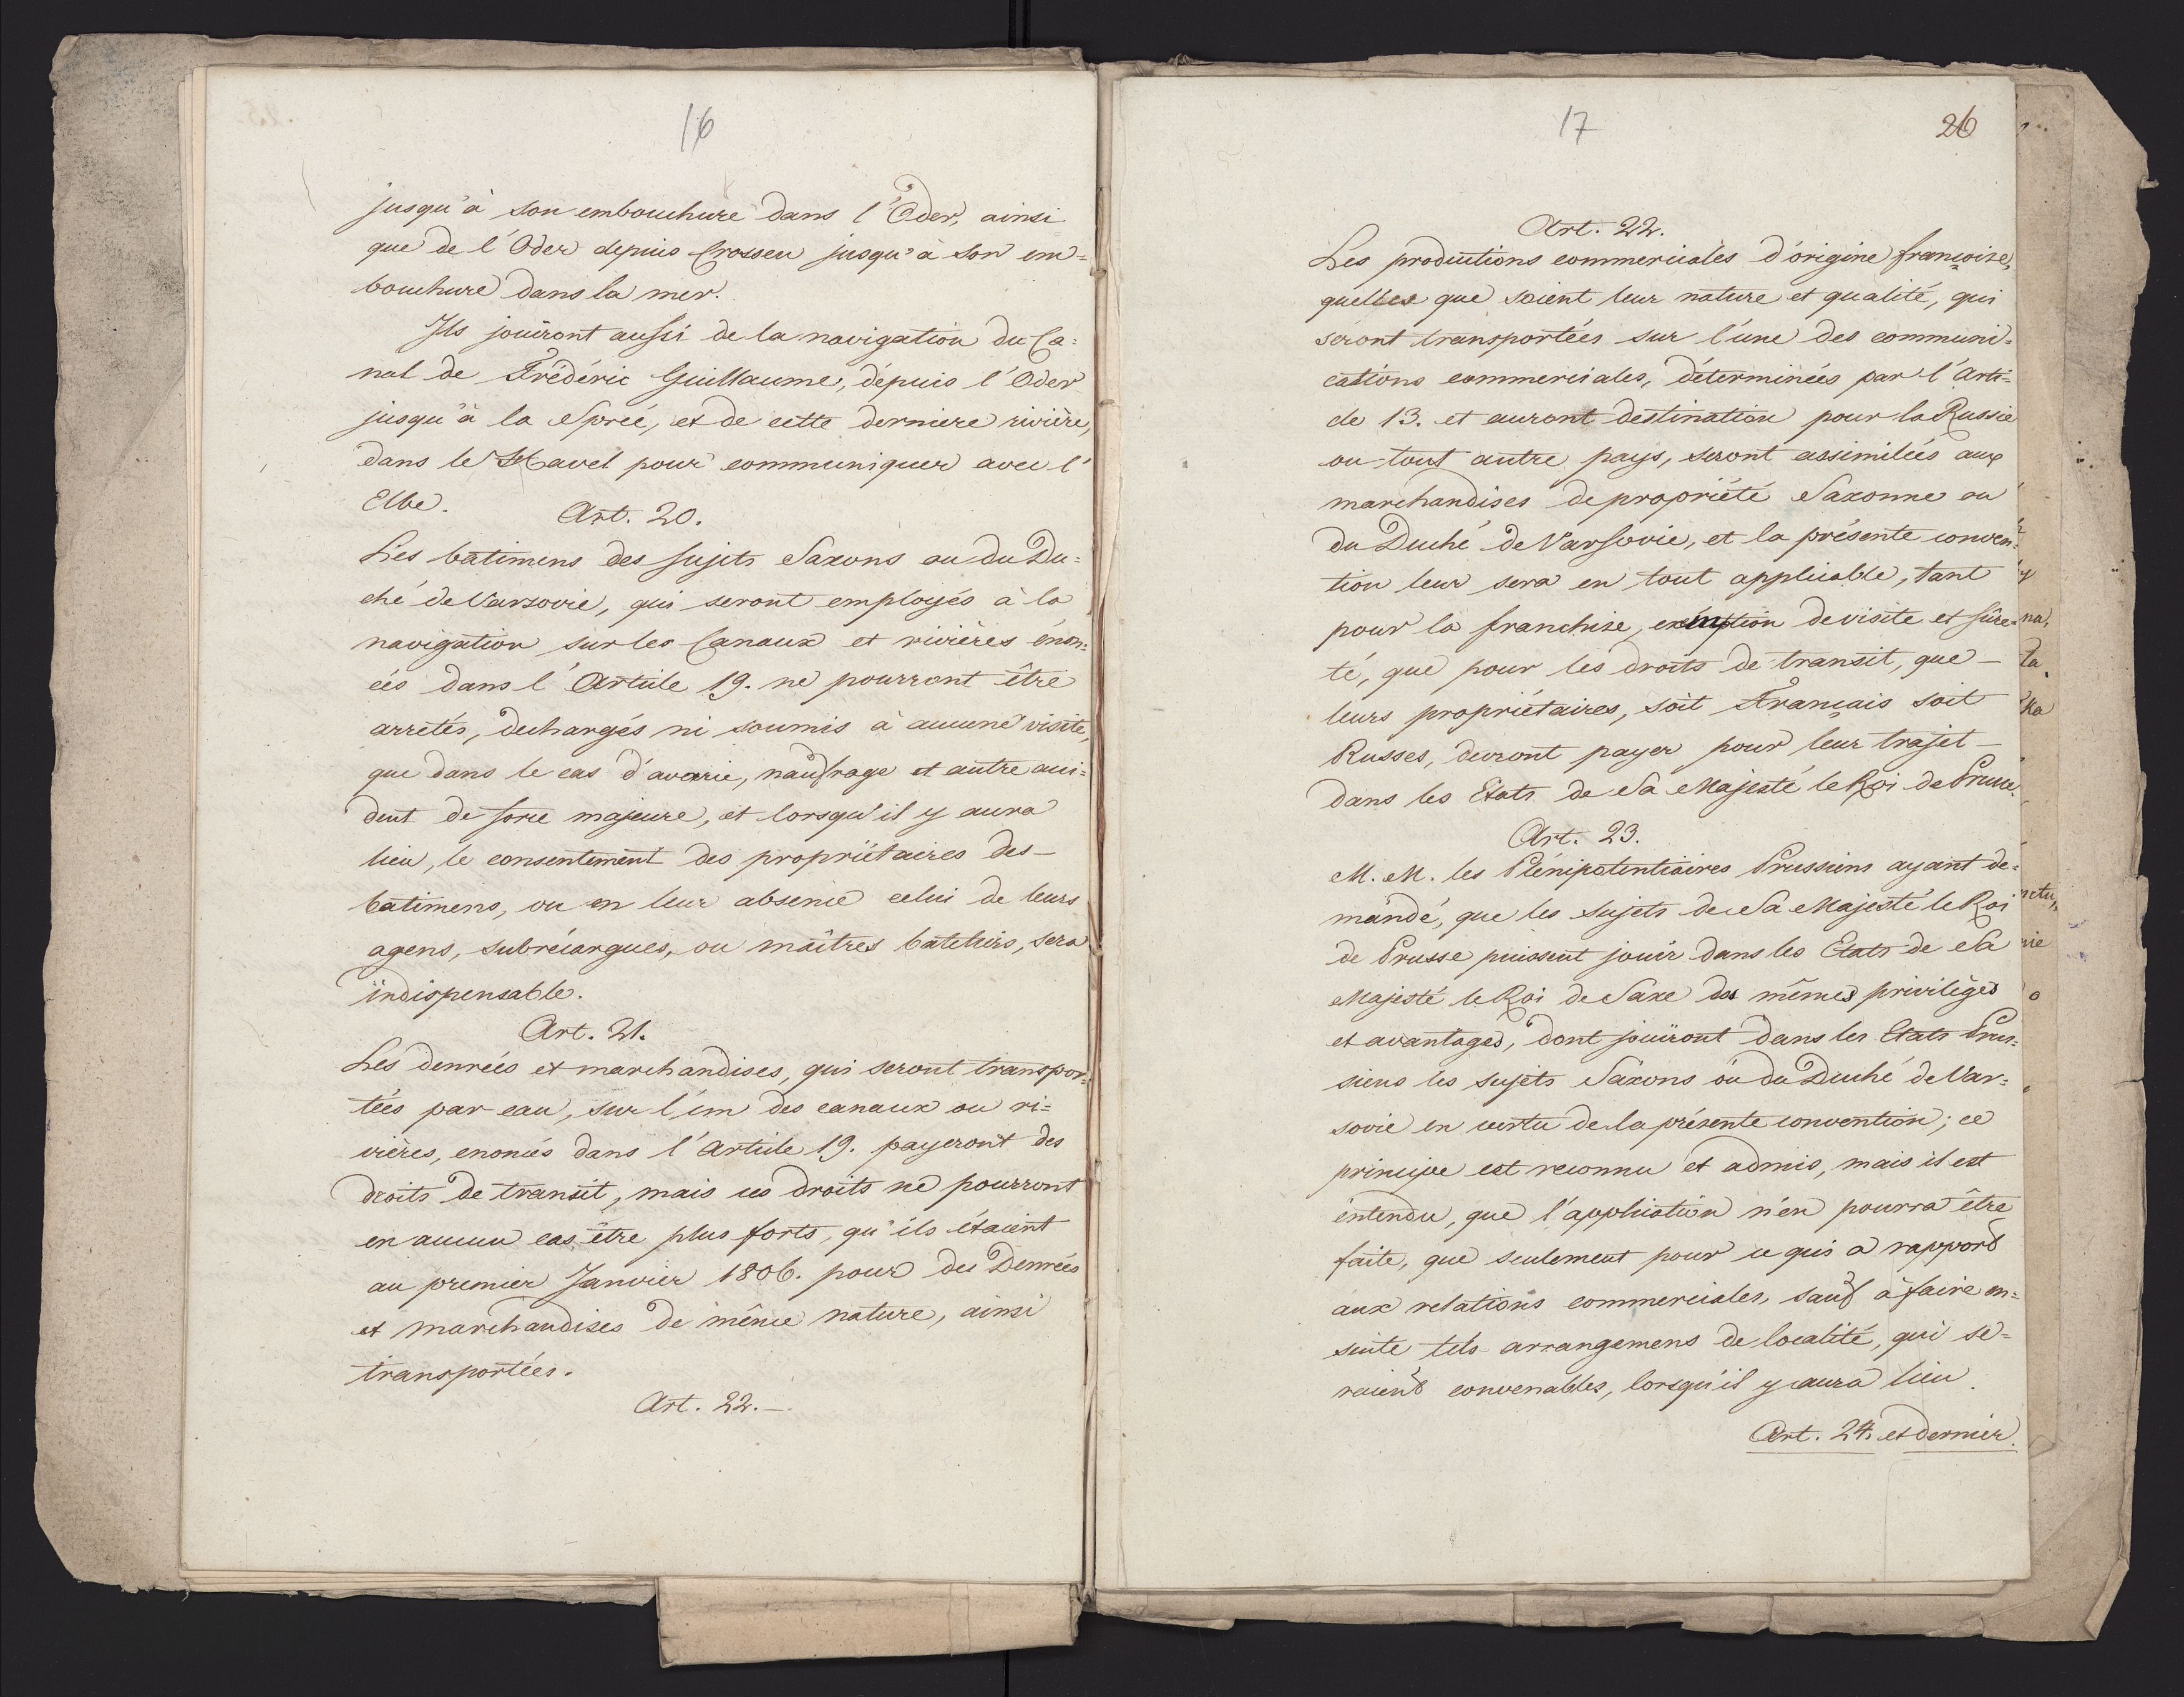 16
jusqu'à son embouchure dans l'Oder, ainsi
que de l'Oder depuis Crossen jusqu'à son em=
bouchure dans la mer.
Ils jouiront aussi de la navigation du Ca=
nal de Frédéric Guillaume, dépuis l'Oder
jusqu'à la Sprée, et de cette derniere rivière,
dans le Havel pour communiquer avec l'
Elbe.
Art. 20.
Les bâtimens des sujets Saxons ou du Du=
ché de Varsovie, qui seront employés à la
navigation sur les Canaux et rivières énon=
cés dans l'Article 19. ne pourront être
arretés, dechargés ni soumis à aucune visite,
que dans le cas d'avarie, naufrage et autre acci=
dent de force majeure, et lorsqu'il y aura
lieu, le consentement des propriétaires des —
batimens, ou en leur absence celui de leurs
agens, subrécargues, ou maîtres bateliers, sera
indispensable.
Art. 21.
Les denrées et marchandises, qui seront transpor=
tées par eau, sur l'un des canaux ou ri=
vières, enoncés dans l'Article 19. payeront des
droits de transit, mais ces droits ne pourront
en aucun cas être plus forts, qu'ils étaient
au premier Janvier 1806. pour des Denrées
et marchandises de même nature, ainsi
transportées.
Art. 22. —
17
26
Art. 22.
Les productions commerciales d'origine françoise,
quelles que soient leur nature et qualité, qui
seront transportées sur l'une des communi=
cations commerciales, déterminées par l'Arti=
cle 13. et auront destination pour la Russie
ou tout autre pays, seront assimilées aux
marchandises de propriété Saxonne ou
du Duché de Varsovie, et la présente conven=
tion leur sera en tout applicable, tant
pour la franchise, exemption de visite et sûre=
té, que pour les droits de transit, que —
leurs propriétaires, soit Français soit
Russes, devront payer pour leur trajet —
dans les Etats de Sa Majesté le Roi de Prusse.
Art. 23.
M. M. les Plénipotentiaires Prussiens ayant de=
mandé, que les sujets de Sa Majesté le Roi
de Prusse puissent jouir dans les Etats de Sa
Majesté le Roi de Saxe des mêmes privilèges
et avantages, dont jouiront dans les Etats Prus=
siens les sujets Saxons ou du Duché de Var=
sovie en vertu de la présente convention; ce
principe est reconnu et admis, mais il est
entendu, que l'application n'en pourra être
faite, que seulement pour ce qui a rapport
aux relations commerciales, sauf à faire en=
suite tels arrangemens de localité, qui se=
raient convenables, lorsqu'il y aura lieu.
Art. 24. et dernier.